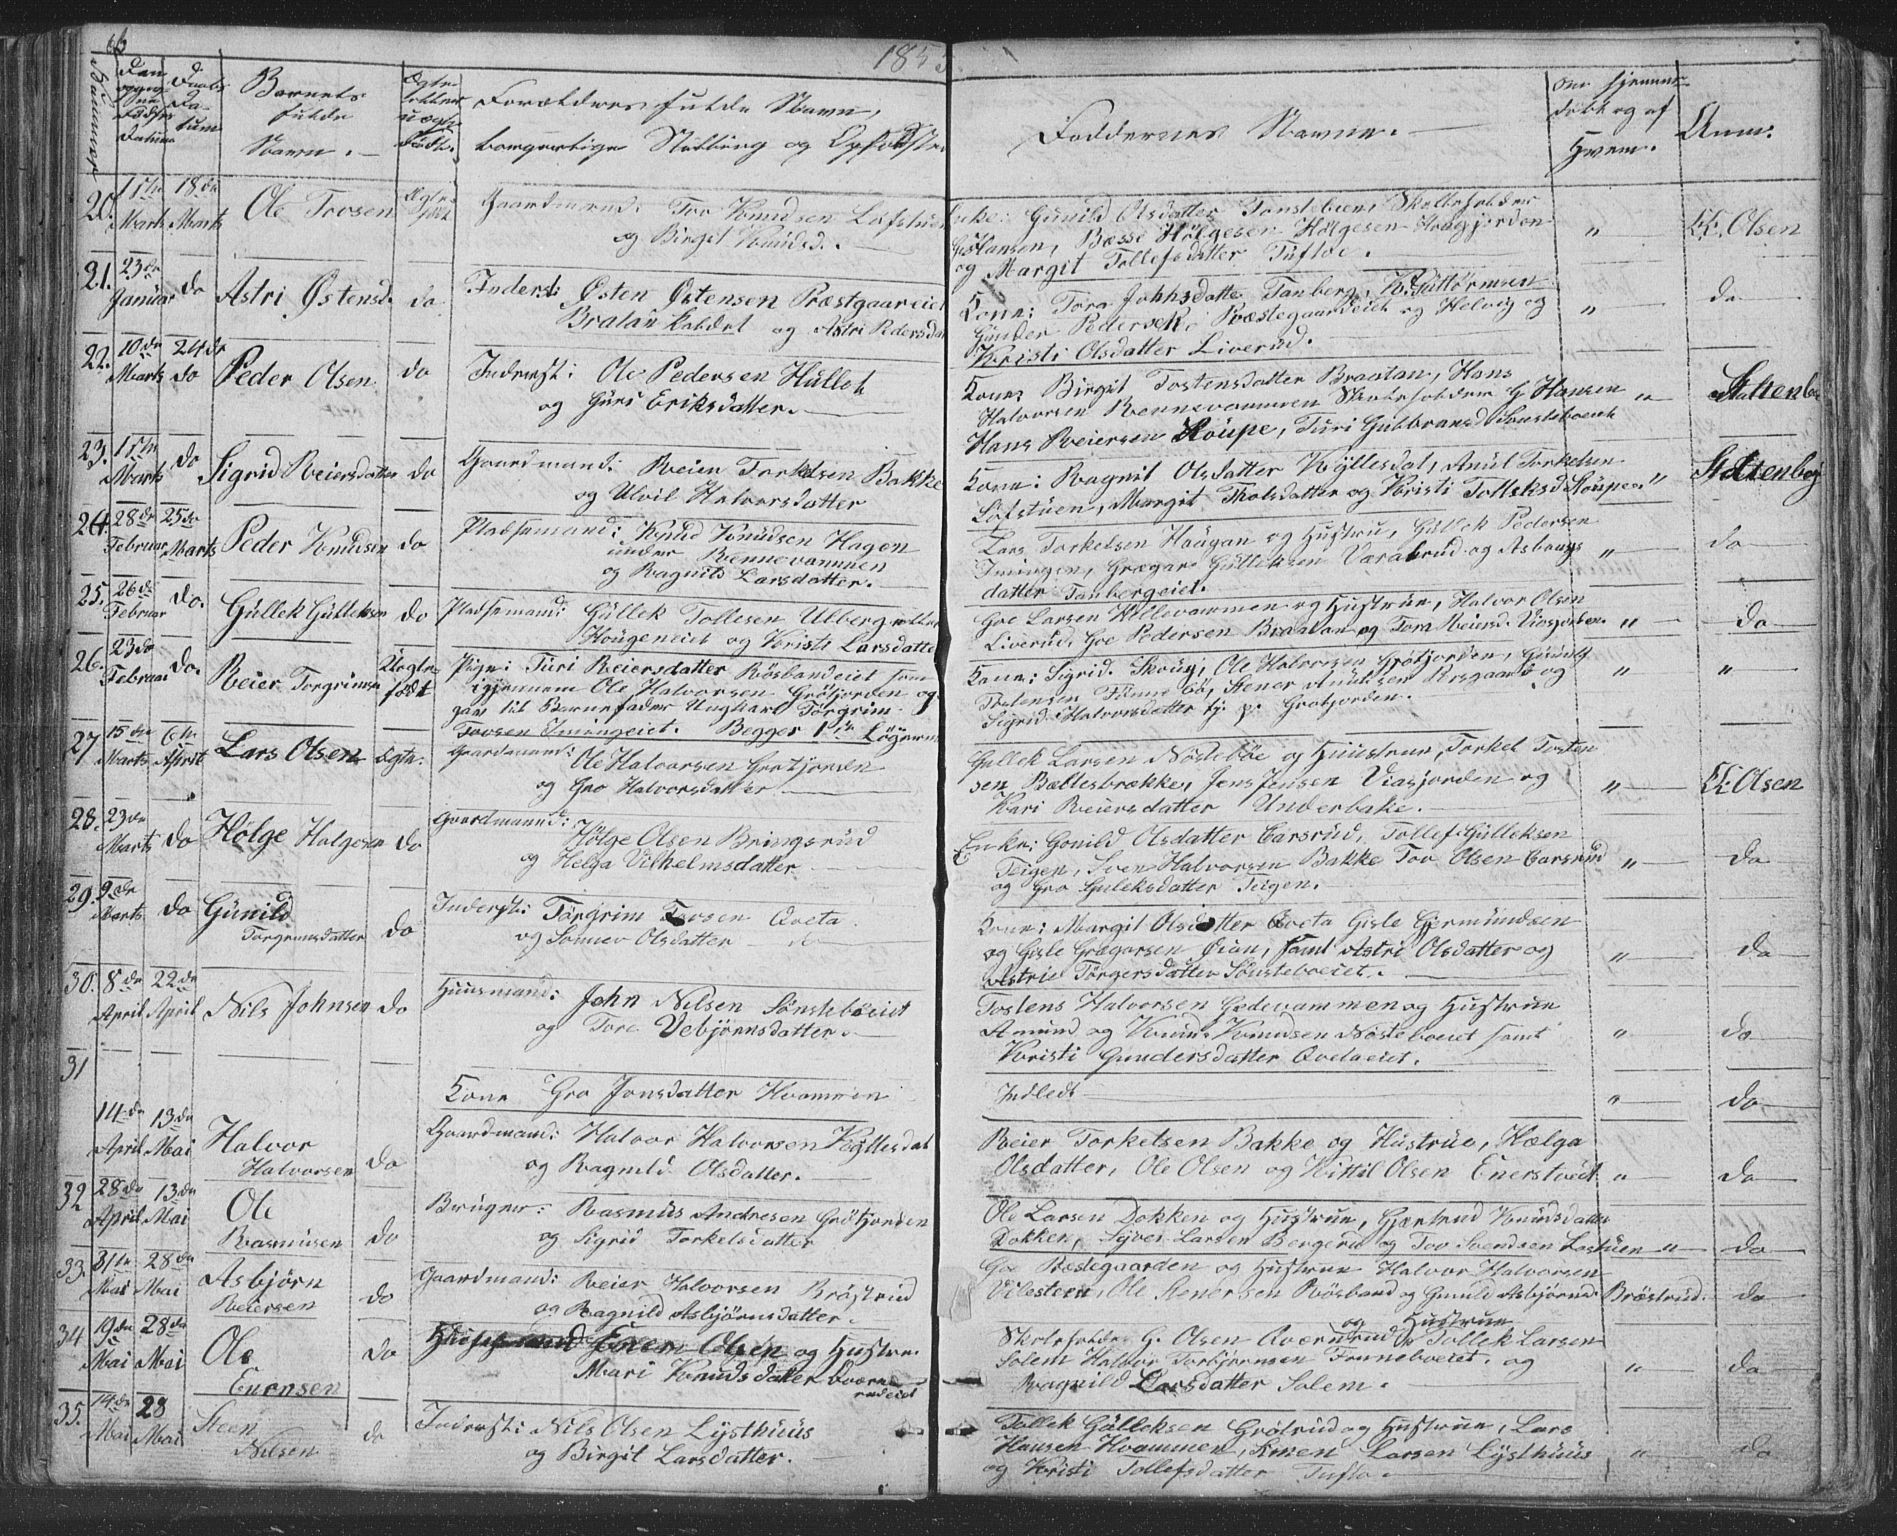 66
185
Barnets
fulde
Navn.
Daabs
Datum
Forældrenes fulde Navn,
borgerlige Stilling og Opholdsted
Faddernes Navne.
Om hjemme
døbt og af
Hvem.
Anm.
20. 15de Marts 18de Marts Ole Torsen Ægte født
Gaardmand: Tor Knudsen Lofstuen
og Birgit Knudsd.
Enke: Gunild Olsdatter Tonstebøen, Skoleholder
G Hansen, Basse Hølgesen Hølgesen Hougjorden
og Margit Tollefsdatter Tufto.
" K. Olsen
21. 23de Januar do Astri Østensd. do
Inderst: Østen Østensen Præstgaareiet
Bratan kaldet og Astri Pedersda
Kone: Tora Johnsdatter Tanberg,
Gunder Pedersen, Præstegaardeiet og Helvig og
Kristi Olsdatter Liverud.
" do
22. 10de Marts 24de do Peder Olsen do
Inderst: Ole Pedersen Hullet
og Guri Eriksdatter.
Kone Birgit Tostensdatter Braatan, Hans
Halvorsen Rennevammen Skoleholdern G Hansen
Hans Reiersen Roupe, Turi Gulbransd Tonsteboeiet
" Stltenbe
23. 15de Marts do Sigrid Reiersdatter do
Gaardmand: Reier Torkelsen Bakke
og Ulvil Halvorsdatter
Kone: Ragnil Olsdatter Kyllesdal, Amul Torkelsen
Lofstuen, Margit Tholsdatter og Kristi Tollefsd Roupe.
" Stltenberg
24. 28de Februar 25de Marts Peder Knudsen do
Pladsemand: Knud Knudsen Hagen
under Rennevammen
og Ragnild Larsdatter.
Lars Torkelsen Haugan og Hustru, Gullek Pedersen
Imingen, Grægar Gulleksen Varabrud og Asbørgs
datter Tanbergeiet.
" do
25. 26de Februar do. Gullek Gulleksen do
Pladsemand: Gullek Tollesen Ulberg eller
Hougeneiet og Kristi Larsdatte
Goe Larsen Killevammen og Hustrue, Halvor Olsen
Liverud, Goe Pedersen Braatan og Tora Reiersd. Viosjorden
" do
26. 23de Februar do. Reier Torgrimsen Uægte født
Pige: Turi Reiersdatter Røsbondeiet som
igjennem Ole Halvorsen Grøtjorden op
gav til Barnefader Ungkarl Torgrim
Torsen Imingeiet. Begges 1ste Leierm
Kone: Sigrid Skoug, Ole Halvorsen Grøtjorden, Gunild
Tostensen Tunnebø, Stener Amundsen Aasgaard og
Sigrid Halvorsdatter tj. p. Grøtjorden.
" "
27 15de Marts 6te April Lars Olsen Ægte.
Gaardmand: Ole Halvorsen Grøtjorden
og Gro Halvorsdatter
Gullek Larsen Nøsteboe og Hustrue, Torkel Tosten
sen Ballesbrække, Jens Jensen Viasjorden og
Kari Reiersdatter Underbake.
" K. Olsen
28. 23de Marts do Hølge Holgesen do
Gaardmand: Hølge Olsen Bringsrud
og Helga Vilhelmsdatter
Enke: Gonild Olsdatter Carsrud, Tollef Gulleksen
Teigen, Sven Halvorsen Bakke Tov Olsen Carsrud
og Gro Guleksdatter Teigen.
" do
29. 9de Marts do Gunild
Torgrimsdatter do
Inderst: Torgrim Torsen Qveta
og Sonnev Olsdatter do
Kone: Margit Olsdatter Qveta Gisle Gjermundsen
og Gisle Gregarsen Øian, samt Astri Olsdatter og
Astrie Torgersdatter Sønsteboeiet.
" do
30. 8de April 22de April Nils Johnsen do
Huusmand: John Nilsen Sønsteboeiet
og Tore Vebjørnsdatter.
Tostens Halvorsen Gedevammen og Hustrue
Amund og Knud Knudsen Nøsteboeiet samt
Kristi Gundersdatter Qvetaeiet.
" do
31
Kone Gro Jonsdatter Hvammen
Indledt
" do
14de April 13de Mai Halvor
Halvorsen do
Gaardmand: Halvor Halvorsen Kyllesdal
og Ragnild Olsdatter.
Reier Torkelsen Bakke og Hustrue, Hælga
Olsdatter, Ole Olsen og Kittil Olsen Enerstvedt
" do
32 28de April 13de Mai Ole
Rasmusen do
Bruger: Rasmus Andresen Grøtjorden
og Sigrid Torkelsdatter
Ole Larsen Dokken og Hustrue, Gjærtrud Knudsdatter
Dokken, Syver Larsen Bergerud og Tov Svendsen Lostuen
" do
33. 31te Mai 28de Mai Asbjørn
Reiersen do
Gaardmand: Reier Halvorsen Brøstrud
og Ragnild Asbjørnsdatter.
Goe Bøstegaarden og Hustrue Halvor Halvorsen
Vilesteen, Ole Stenersen Røsband og Gunild Asbjørnsd. Brøstrud.
do
34 19de Mai 28de Mai Ole
Enersen do
Ener Olsen og Hustrue
Mari Knudsdatter Qværn
rudeiet
Skoleholder G. Olsen Qværnrud og Hustrue Tollek Larsen
Solem Halvor Torbjørnsen Frønneboeiet. og
Ragnild Larsdatter Solem.
" do
35. 14de Mai 28 Mai Steen
Nilsen do
Inderst: Nils Olsen Lysthuus
og Birgit Larsdatter.
Tollek Gulleksen Grøtrud og Hustrue, Lars
Hansen Hvammen, Amen Larsen Lysthuus
og Kristi Tollefsdatter Tufto.
" do